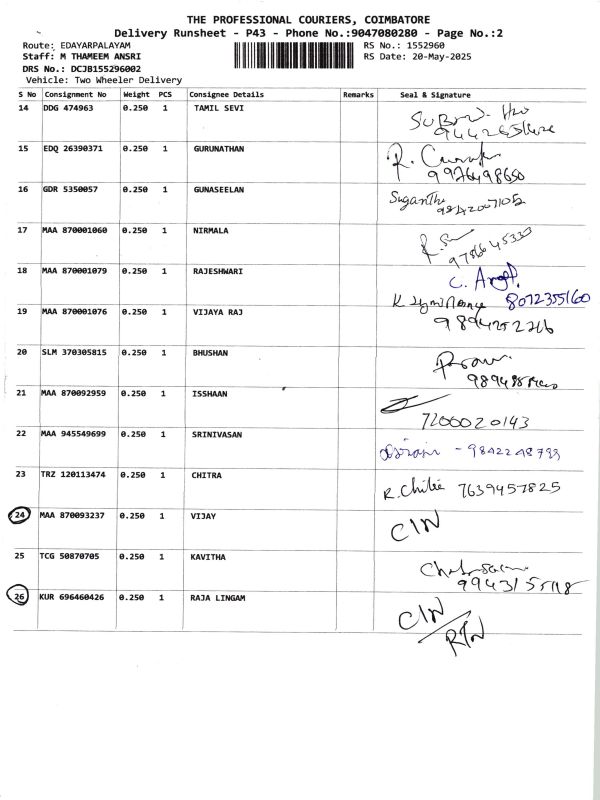 THE PROFESSIONAL COURIERS, COIMBATORE
Delivery Runsheet - P43 - Phone No.:9047080280 - Page No.:2
Route: EDAYARPALAYAM RS No.: 1552960
Staff: M THAMEEM ANSRI RS Date: 20-May-2025
DRS No.: DCJB155296002
Vehicle: Two Wheeler Delivery
S No Consignment No Weight PCS Consignee Details Remarks Seal & Signature
14 DDG 474963 0.250 1 TAMIL SEVI
15 EDQ 26390371 0.250 1 GURUNATHAN
9976498650
16 GDR 5350057 0.250 1 GUNASEELAN Suganthi
9842007102
17 MAA 870001060 0.250 1 NIRMALA
9786645333
18 MAA 870001079 0.250 1 RAJESHWARI
8072355160
19 MAA 870001076 0.250 1 VIJAYA RAJ
20 SLM 370305815 0.250 1 BHUSHAN
21 MAA 870092959 0.250 1 ISSHAAN
7200020143
22 MAA 945549699 0.250 1 SRINIVASAN - 9842248793
23 TRZ 120113474 0.250 1 CHITRA R. 7639457825
24 MAA 870093237 0.250 1 VIJAY CIN
25 TCG 50870705 0.250 1 KAVITHA
26 KUR 696460426 0.250 1 RAJA LINGAM CIN/
RTN